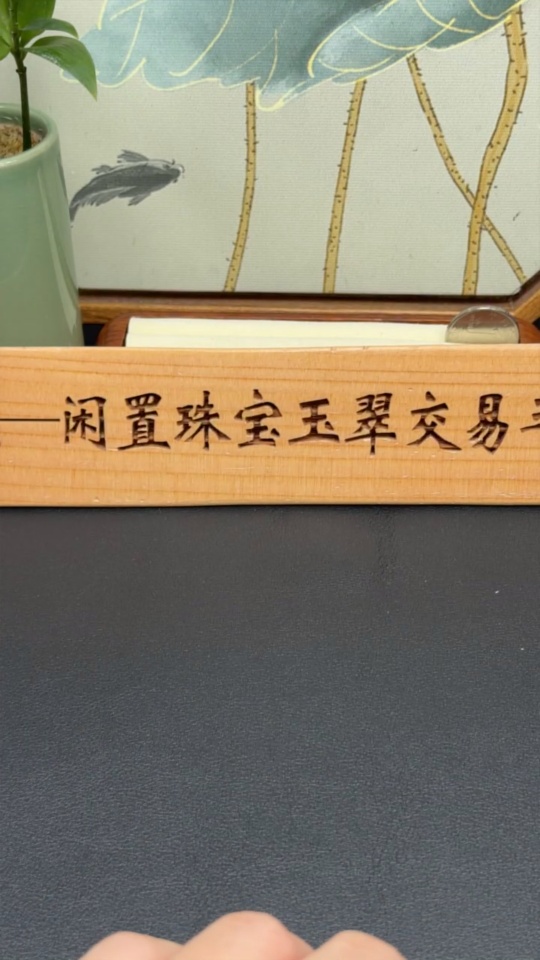 ——闲置珠宝玉翠交易